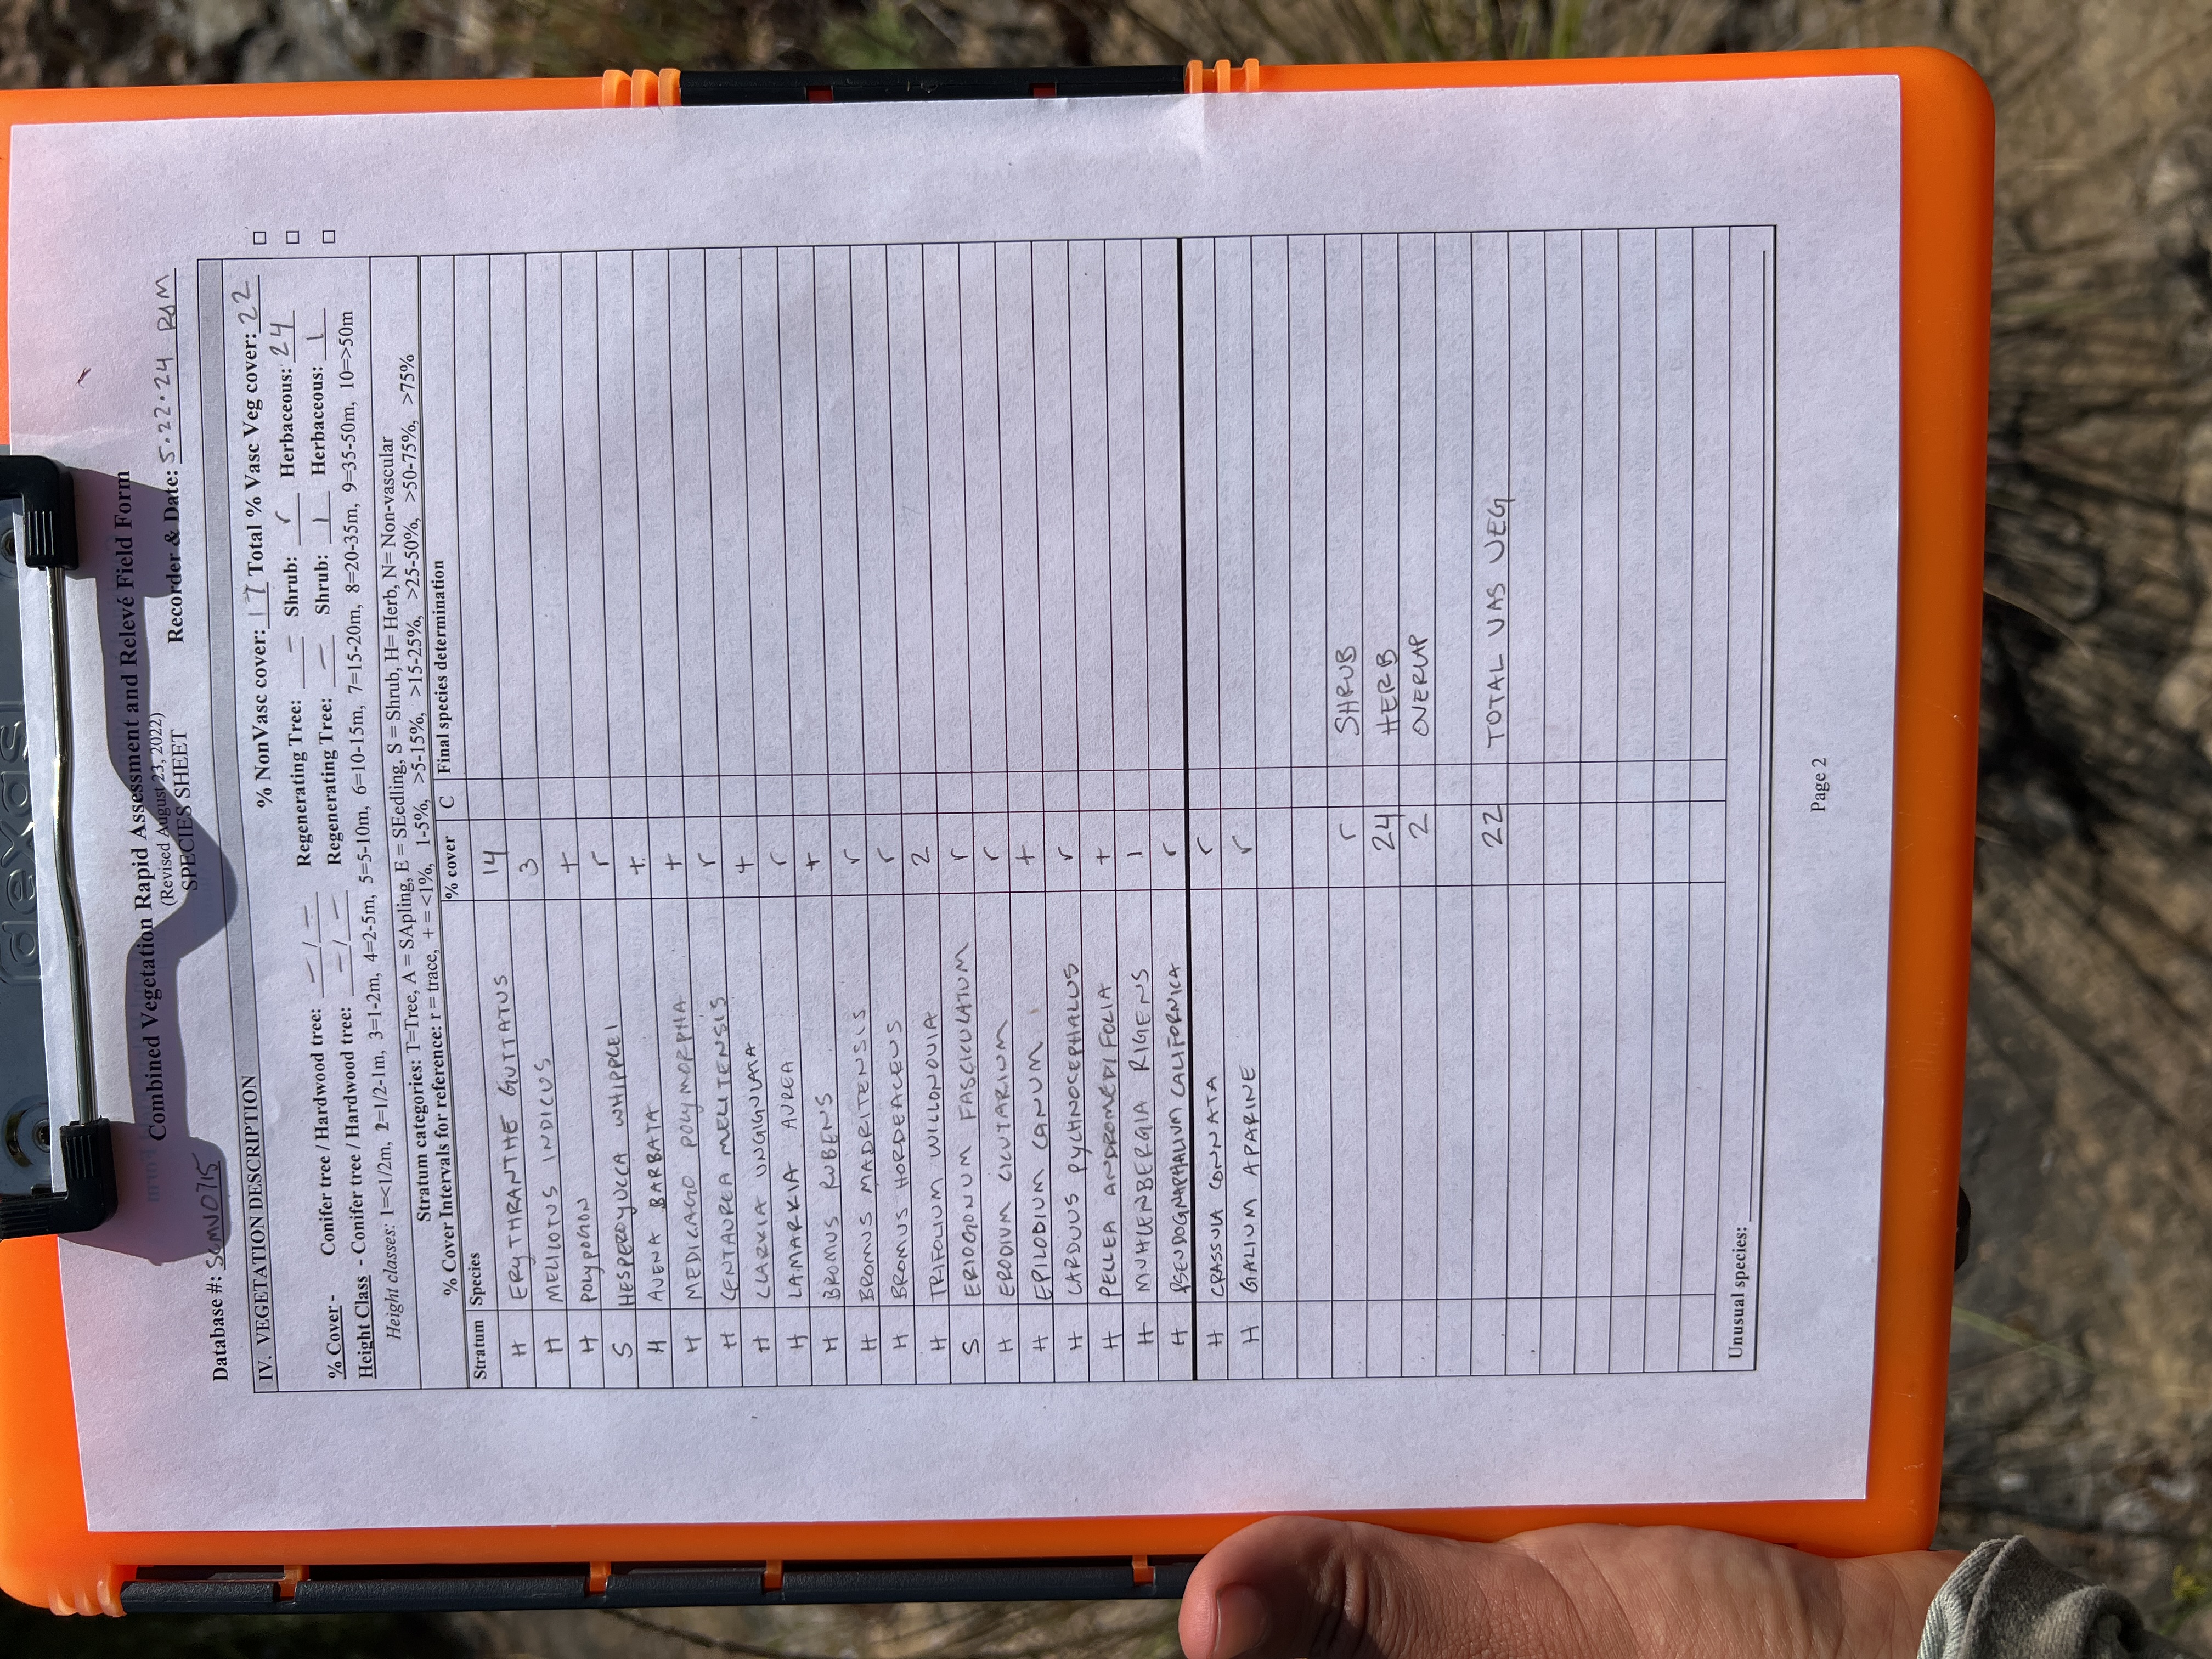 dexas
Combined Vegetation Rapid Assessment and Relevé Field Form
(Revised August 23, 2022)
SPECIES SHEET
Database #: SCMN0715 Recorder & Date: 5.22.24 RDM
IV. VEGETATION DESCRIPTION
% NonVasc cover: 17 Total % Vasc Veg cover: 22 □
% Cover - Conifer tree / Hardwood tree: - / - Regenerating Tree: - Shrub: r Herbaceous: 24 □
Height Class - Conifer tree / Hardwood tree: - / - Regenerating Tree: - Shrub: 1 Herbaceous: 1 □
Height classes: 1=<1/2m, 2=1/2-1m, 3=1-2m, 4=2-5m, 5=5-10m, 6=10-15m, 7=15-20m, 8=20-35m, 9=35-50m, 10=>50m
Stratum categories: T=Tree, A = SApling, E = SEedling, S = Shrub, H= Herb, N= Non-vascular
% Cover Intervals for reference: r = trace, + = <1%, 1-5%, >5-15%, >15-25%, >25-50%, >50-75%, >75%
Stratum Species % cover C Final species determination
H ERYTHRANTHE GUTTATUS 14
H MELILOTUS INDICUS 3
H POLYPOGON +
S HESPEROYUCCA WHIPPLEI r
H AVENA BARBATA +
H MEDICAGO POLYMORPHA +
H CENTAUREA MELITENSIS r
H CLARKIA UNGIGULATA +
H LAMARKIA AUREA r
H BROMUS RUBENS +
H BROMUS MADRITENSIS r
H BROMUS HORDEACEUS r
H TRIFOLIUM WILLONOVIA 2
S ERIOGONUM FASCICULATUM r
H ERODIUM CICUTARIUM r
H EPILODIUM CANUM +
H CARDUUS PYCHNOCEPHALUS r
H PELLEA ANDROMEDIFOLIA +
H MUHLENBERGIA RIGENS 1
H PSEUDOGNAPHALIUM CALIFORNICA r
H CRASSULA CONNATA r
H GALIUM APARINE r
r SHRUB
24 HERB
2 OVERLAP
22 TOTAL VAS VEG
Unusual species:
Page 2